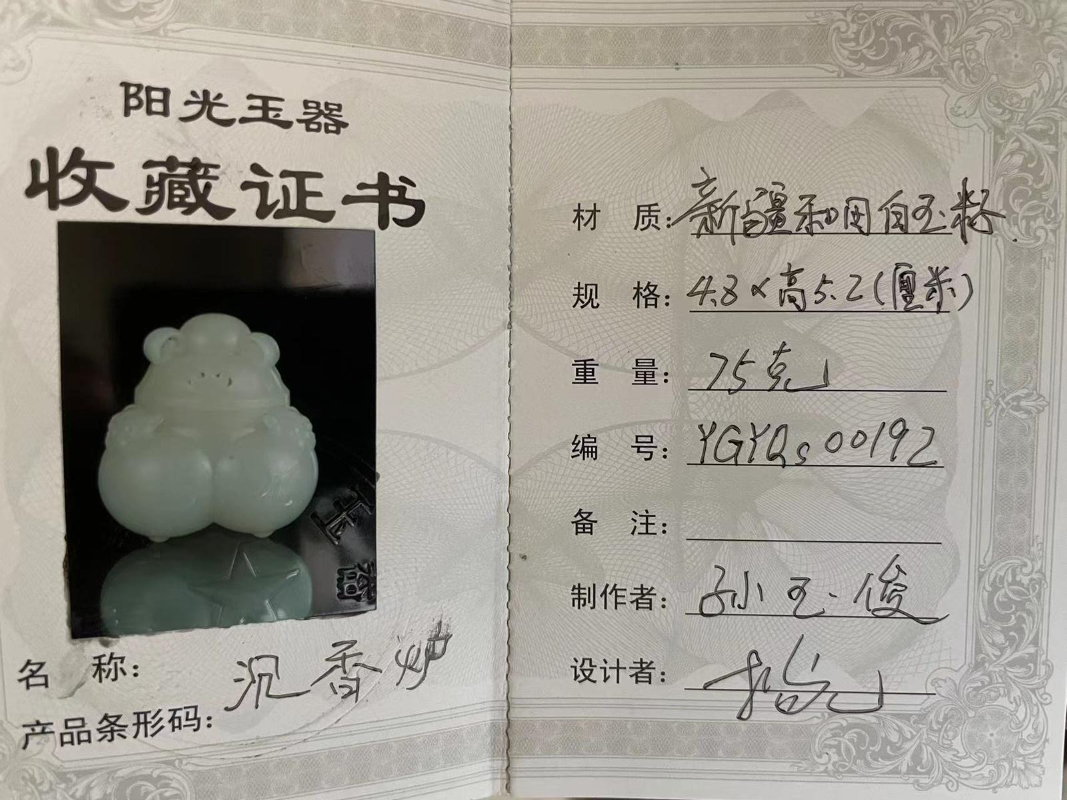 阳光玉器
收藏证书
名 称：沉香炉
产品条形码：
材 质：新疆和田白玉籽
规 格：4.8×高5.2（厘米）
重 量：75克
编 号：YGYQs00192
备 注：
制作者：孙玉俊
设计者：
玉
器